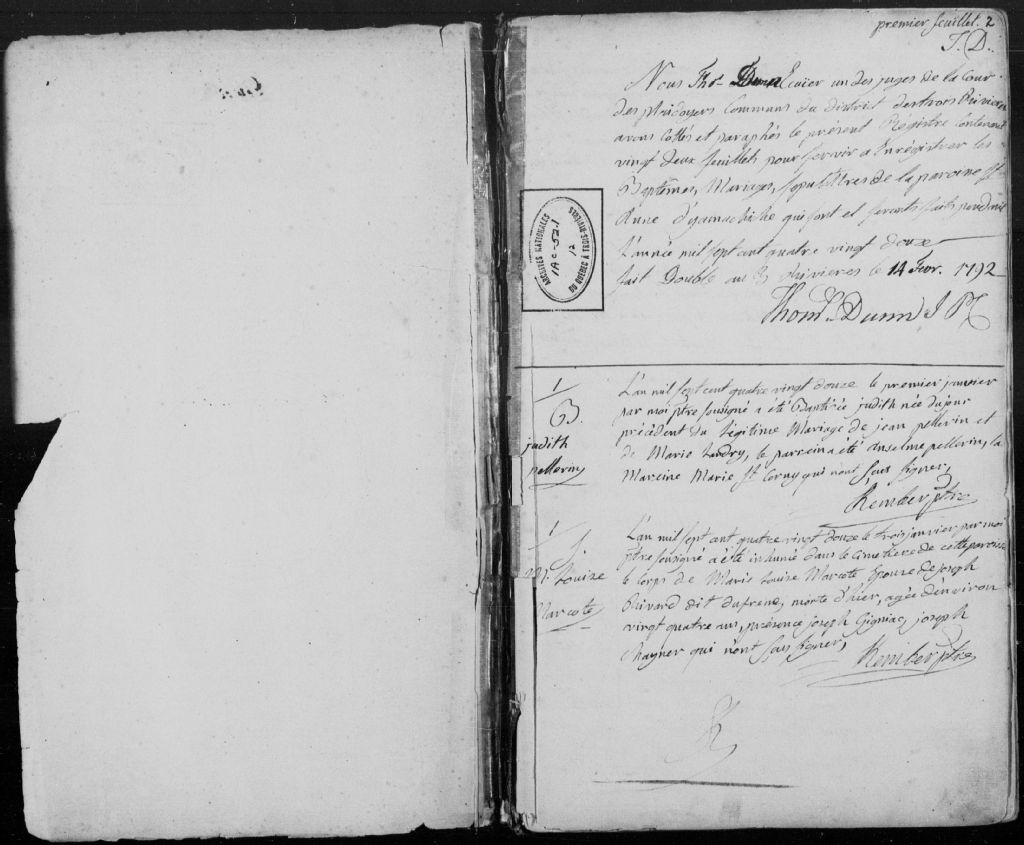 premier feuillet. 2
T. D.
Nous Thos. Dunn Ecuier un des juges de la Cour
des plaidoyers Communs du district des trois Rivieres
avons Cottés et paraphés le présent Régistre Contenant
vingt deux feuillets pour servir a Enrégistrer les
Baptêmes, Mariages, Sepultures de la paroisse St
Anne d'yamachiche qui sont et seronts faits pendant
L'année mil sept cent quatre vingt douze
fait Double aux 3 Rivieres le 14 Fevr. 1792
Thoms. Dunn J
ARCHIVES NATIONALES
1AC-52.1
12
DU QUÉBEC À TROIS-RIVIÈRES
1
B.
judith
pellerin
L'an mil sept cent quatre vingt douze le premier janvier
par moi ptre sousigné a été Baptisée judith née du jour
précédent du Légitime Mariage de jean pellerin et
de Marie Landry, le parrein a été anselme pellerin, la
Mareine Marie St Cerny qui n'ont sçus signer,
Rember ptre
1
S.
M. Louise
Marcote
L'an mil sept cent quatre vingt douze le trois janvier par moi
ptre sousigné a été inhumé dans le Cimetiere de cette paroisse
le Corps de Marie Louise Marcote Epouse de joseph
Rivard dit dufrene, morte d'hier, agée d'environ
vingt quatre ans, présence joseph Gigniac, joseph
qui n'ont sçus signer,
Rember ptre